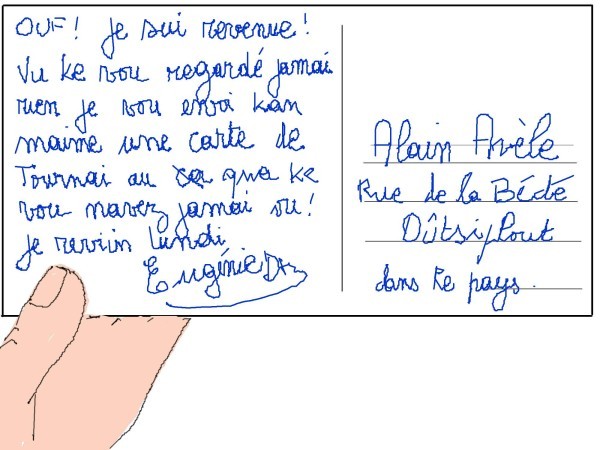 OUF! je sui revenue!
Vu ke vou regardé jamai
rien je vou envoi kan
maime une carte de
Tournai au ca qua ke
vou navez jamai vu!
je reviin lundi
Eugénie
Alain Avèle
Rue de la Béde
dans le pays.